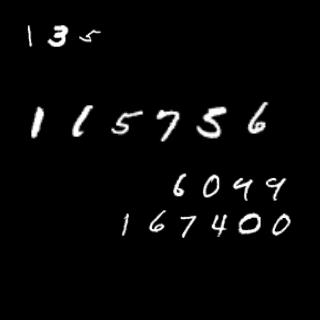 135
165756
6099
167400